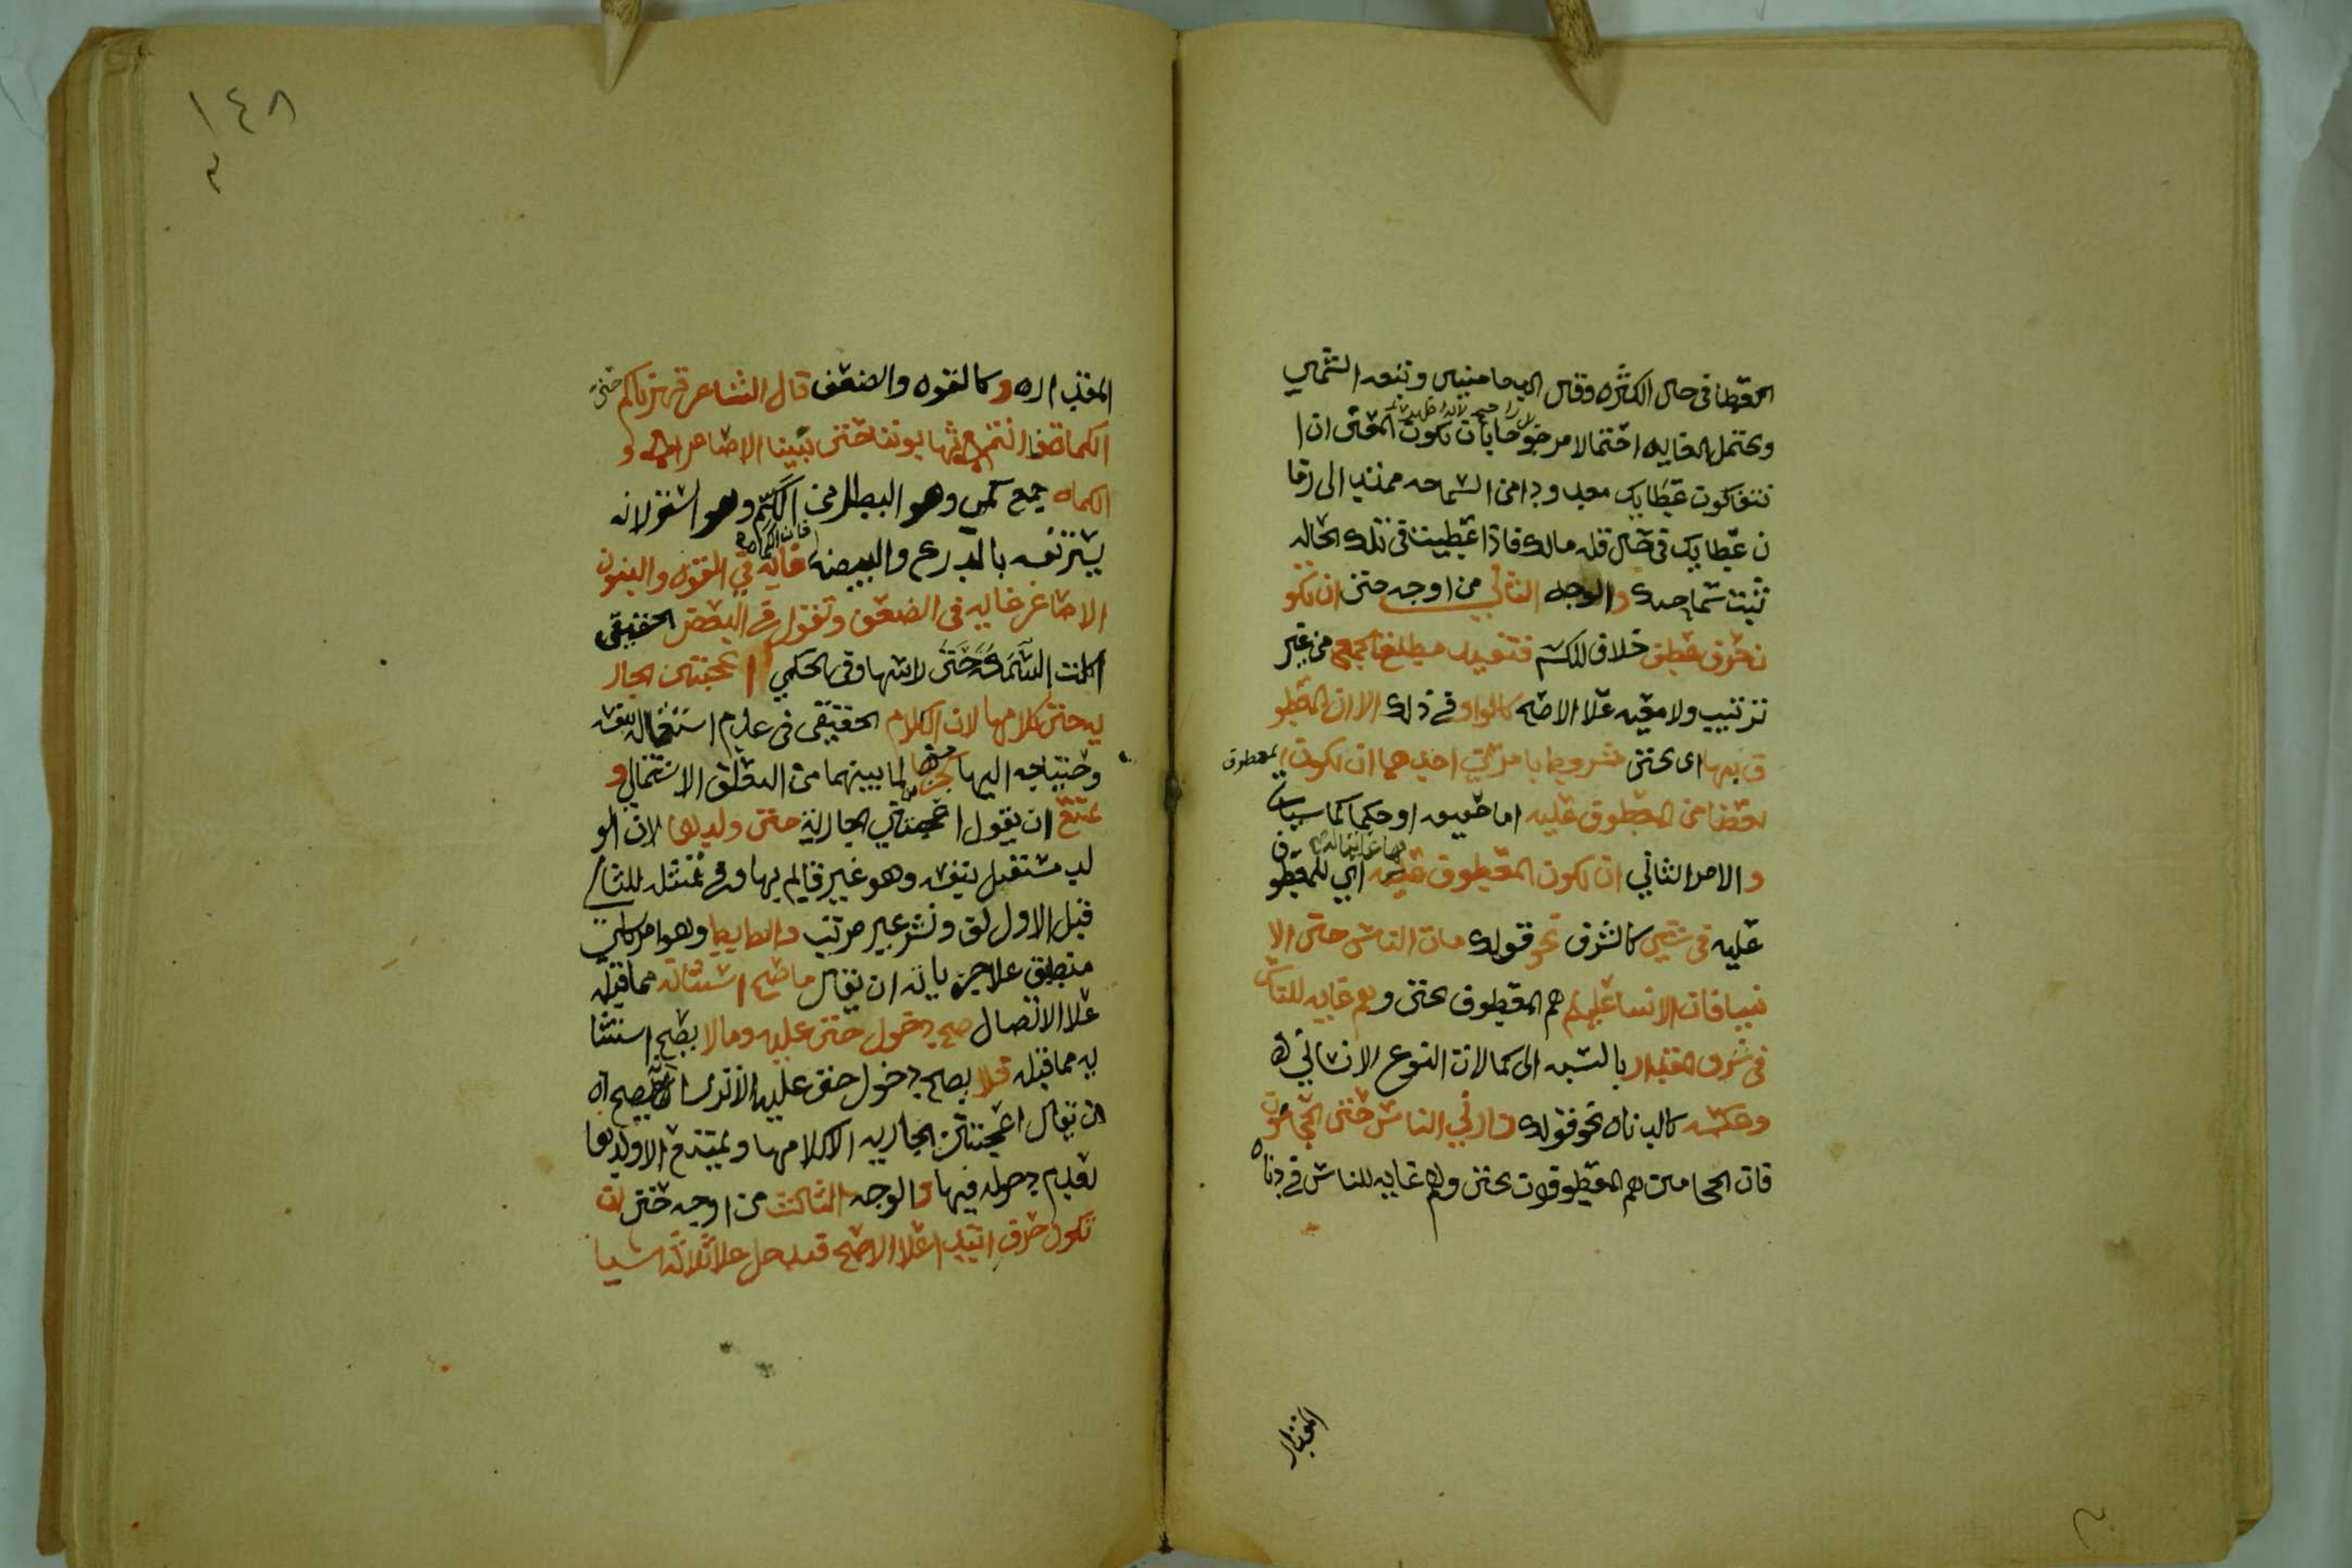 العطا في حال الكثره وقال الدمامينى وتبعه الشمني
ويحتمل الغايه احتمالا مرجوحا بان تكون المعنى ان ا
نتفا كون عطايك معدودا من السماحه ممتد الى زما
ن عطايك في حال قله مالك فاذا اعطيت في تلك الحاله
ثبت سماحتك والوجه الثاني من اوجه حتى ان تكو
ن حرف عطف خلاف للكسر فتفيد مطلق الجمع من غير
ترتيب ولا معيه علا الاصح كالواو في ذلك الا ان المعطو
ف بها اى بحتى مشروط بامرين احدهما ان تكون المعطوف
بعضا من المعطوف عليه اما حقيقه او حكما كما سياتي
والامر الثاني ان تكون المعطوف غايه اي للمعطوف
عليه في شي كالشرف نحو قولك مات الناس حتى الا
نبيا فان الانبيا عليهم هم المعطوف بحتى وهم غايه للناس
في شرف المقدار بالنسبه الى كمالات النوع الانساني
وعكسه كالدناه نحو قولك زارني الناس حتى الحجامون
فان الحجامين هم المعطوفون بحتى وهم غايه للناس في دناه
المقدار
١٤٨
المقداره وكالقوه والضعف قال الشاعر قهرناكم حتى
الكماه فانتم تهابوننا حتى بنينا الاصاغرا و
الكماه جمع كمي وهو البطل من الكم وهو الستر لانه
يستر نفسه بالدرع والبيضه فان الكماه غايه في القوه والبنون
الاصاغر غايه في الضعف وتقول في البعض الحقيقي
اكلت السمكة حتى راسها وفي الحكمي اعجبتني الجار
يه حتى كلامها لان الكلام الحقيقي في عدم استقلاله بنفسه
واحتياجه اليها كجزئها لما بينهما من التعلق الاشتمالي و
يمتنع ان يقول اعجبتني الجارية حتى ولدها لان الو
لد مستقل بنفسه وهو غير قايم بها وفي تمثيله للثاني
قبل الاول لف ونشر غير مرتب والضابط وهو امر كلي
منطبق علا جزياته ان يقال ما صح استثناه مما قبله
علا الاتصال صح دخول حتى عليه وما لا يصح استثنا
يه مما قبله فلا يصح دخول حتى عليه الا ترى انه يصح
ان يقال اعجبتني الجاريه الا كلامها ويمتنع الا ولدها
لعدم دخوله فيها والوجه الثالث من اوجه حتى ان
تكون حرف ابتدا علا الاصح فتدخل علا ثلاثة اشيا